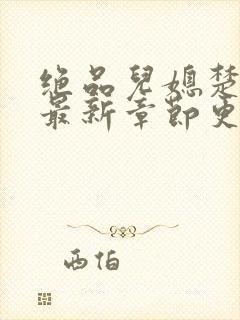 绝品儿媳楚
最新章节更
西伯